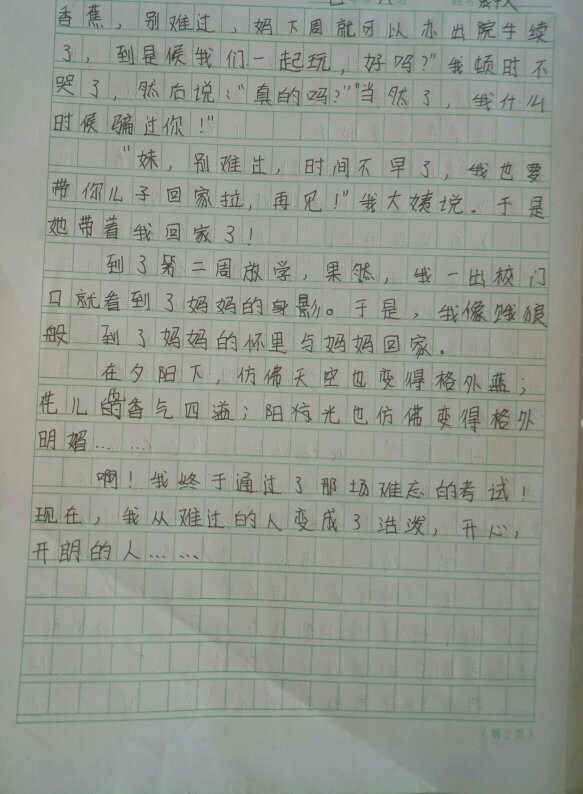 香蕉，别难过，妈下周就可以办出院手续
了，到是候我们一起玩，好吗？"我顿时不
哭了，然后说："真的吗？""当然了，我什么
时候骗过你！"
"妹，别难过，时间不早了，我也要
带你儿子回家拉，再见！"我大姨说。于是
她带着我回家了！
到了第二周放学，果然，我一出校门
口就看到了妈妈的身影。于是，我像饿狼
般 到了妈妈的怀里与妈妈回家。
在夕阳下，仿佛天空也变得格外蓝；
花儿的香气四溢；阳光也仿佛变得格外
明媚……
啊！我终于通过了那场难忘的考试！
现在，我从难过的人变成了活泼，开心，
开朗的人……
（第2页）